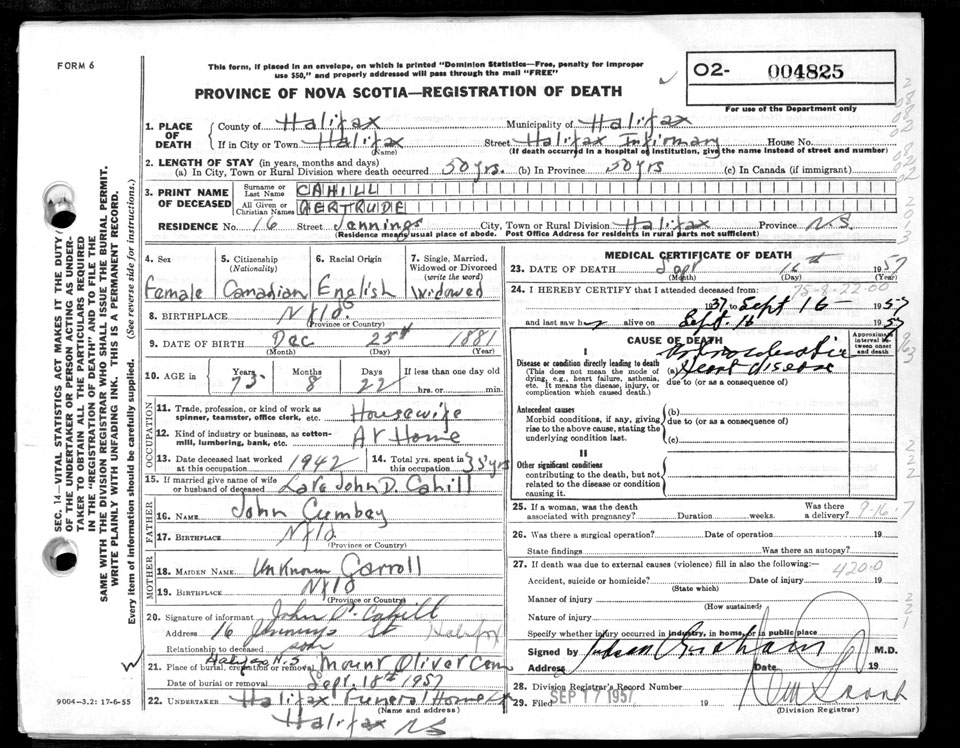 FORM 6
This form, if placed in an envelope, on which is printed "Dominion Statistics—Free, penalty for improper
use $50," and properly addressed will pass through the mail "FREE"
02- 004825
For use of the Department only
PROVINCE OF NOVA SCOTIA—REGISTRATION OF DEATH
SEC. 14—VITAL STATISTICS ACT MAKES IT THE DUTY
OF THE UNDERTAKER OR PERSON ACTING AS UNDER-
TAKER TO OBTAIN ALL THE PARTICULARS REQUIRED
IN THE "REGISTRATION OF DEATH" AND TO FILE THE
SAME WITH THE DIVISION REGISTRAR WHO SHALL ISSUE THE BURIAL PERMIT.
WRITE PLAINLY WITH UNFADING INK. THIS IS A PERMANENT RECORD.
Every item of information should be carefully supplied. (See reverse side for instructions.)
1. PLACE OF DEATH
County of Halifax Municipality of Halifax
If in City or Town Halifax Street Halifax Infirmary House No.
(Name) (If death occurred in a hospital or institution, give the name instead of street and number)
2. LENGTH OF STAY (in years, months and days)
(a) In City, Town or Rural Division where death occurred 50 yrs. (b) In Province 50 yrs (c) In Canada (if immigrant)
3. PRINT NAME OF DECEASED
Surname or Last Name CAHILL
All Given or Christian Names GERTRUDE
RESIDENCE No. 16 Street Jennings City, Town or Rural Division Halifax Province N.S.
(Residence means usual place of abode. Post Office Address for residents in rural parts not sufficient)
4. Sex
Female
5. Citizenship (Nationality)
Canadian
6. Racial Origin
English
7. Single, Married, Widowed or Divorced (write the word)
Widowed
8. BIRTHPLACE Nfld.
(Province or Country)
9. DATE OF BIRTH Dec 25th 1881
(Month) (Day) (Year)
10. AGE in Years 75 Months 8 Days 22 If less than one day old
hrs. or min.
OCCUPATION
11. Trade, profession, or kind of work as spinner, teamster, office clerk, etc. Housewife
12. Kind of industry or business, as cotton-mill, lumbering, bank, etc. At Home
13. Date deceased last worked at this occupation 1942
14. Total yrs. spent in this occupation 35 yrs
15. If married give name of wife or husband of deceased Late John D. Cahill
FATHER
16. NAME John Cumbey
17. BIRTHPLACE Nfld.
(Province or Country)
MOTHER
18. MAIDEN NAME Unknown Carroll
19. BIRTHPLACE Nfld
(Province or Country)
20. Signature of informant John P. Cahill
Address 16 Jennings St Halifax
Relationship to deceased son
21. Place of burial, cremation or removal Halifax N.S Mount Olivet Cem
Date of burial or removal Sept. 18th 1957
22. UNDERTAKER Halifax Funeral Home
(Name and address)
Halifax NS
9004-3.2: 17-6-55
MEDICAL CERTIFICATE OF DEATH
23. DATE OF DEATH Sept 16th 1957
(Month) (Day) (Year)
24. I HEREBY CERTIFY that I attended deceased from: 75-8-22.00
to Sept 16 — 1957
and last saw her alive on Sept. 16 1957
CAUSE OF DEATH
Approximate interval between onset and death
I
Disease or condition directly leading to death
(This does not mean the mode of dying, e.g., heart failure, asthenia, etc. It means the disease, injury, or complication which caused death.)
(a) Arteriosclerotic heart disease
due to (or as a consequence of)
Antecedent causes
Morbid conditions, if any, giving rise to the above cause, stating the underlying condition last.
(b)
due to (or as a consequence of)
(c)
II
Other significant conditions
contributing to the death, but not related to the disease or condition causing it.
25. If a woman, was the death associated with pregnancy? Duration weeks. Was there a delivery? 9-16-7
26. Was there a surgical operation? Date of operation 19
State findings Was there an autopsy?
27. If death was due to external causes (violence) fill in also the following:— 420.0
Accident, suicide or homicide? Date of injury 19
(State which)
Manner of injury
(How sustained)
Nature of injury
Specify whether injury occurred in industry, in home, or in public place
Signed by Graham M.D.
Address Date 19
28. Division Registrar's Record Number
29. Filed SEP 17 1957 19
(Division Registrar)